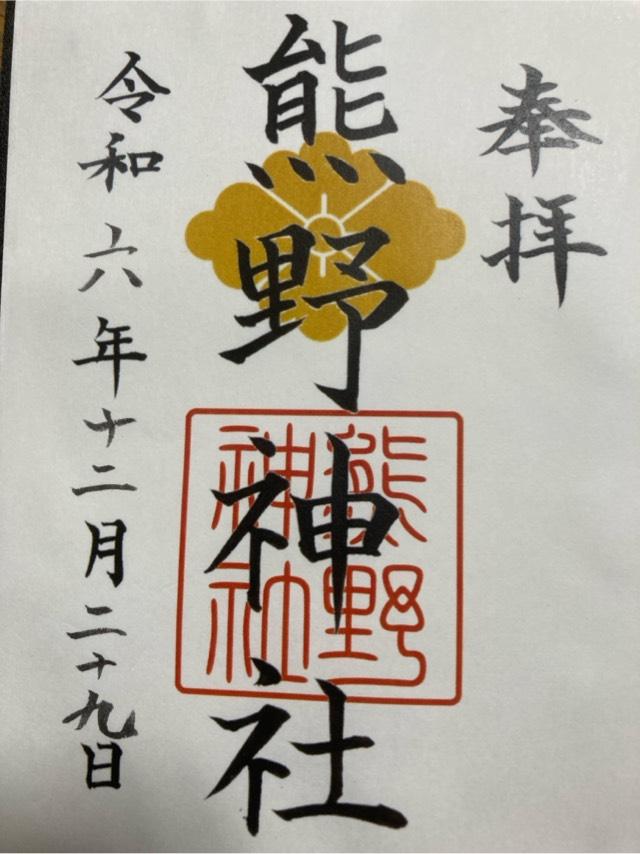 奉拝
熊野神社
熊野
神社
令和六年十二月二十九日